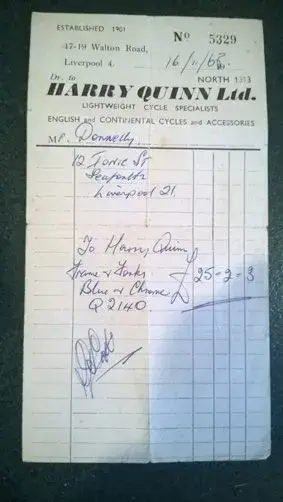 ESTABLISHED 1901
No 5329
47-19 Walton Road,
Liverpool 4.
16/11/63.
Dr. to
NORTH 1313
HARRY QUINN Ltd.
LIGHTWEIGHT CYCLE SPECIALISTS
ENGLISH and CONTINENTAL CYCLES and ACCESSORIES
Mr. Donnelly.
12 Ionic St
Seaforth
Liverpool 21.
To Harry Quinn
Frame & Forks
£25-2-3
Blue & Chrome
Q 2140.